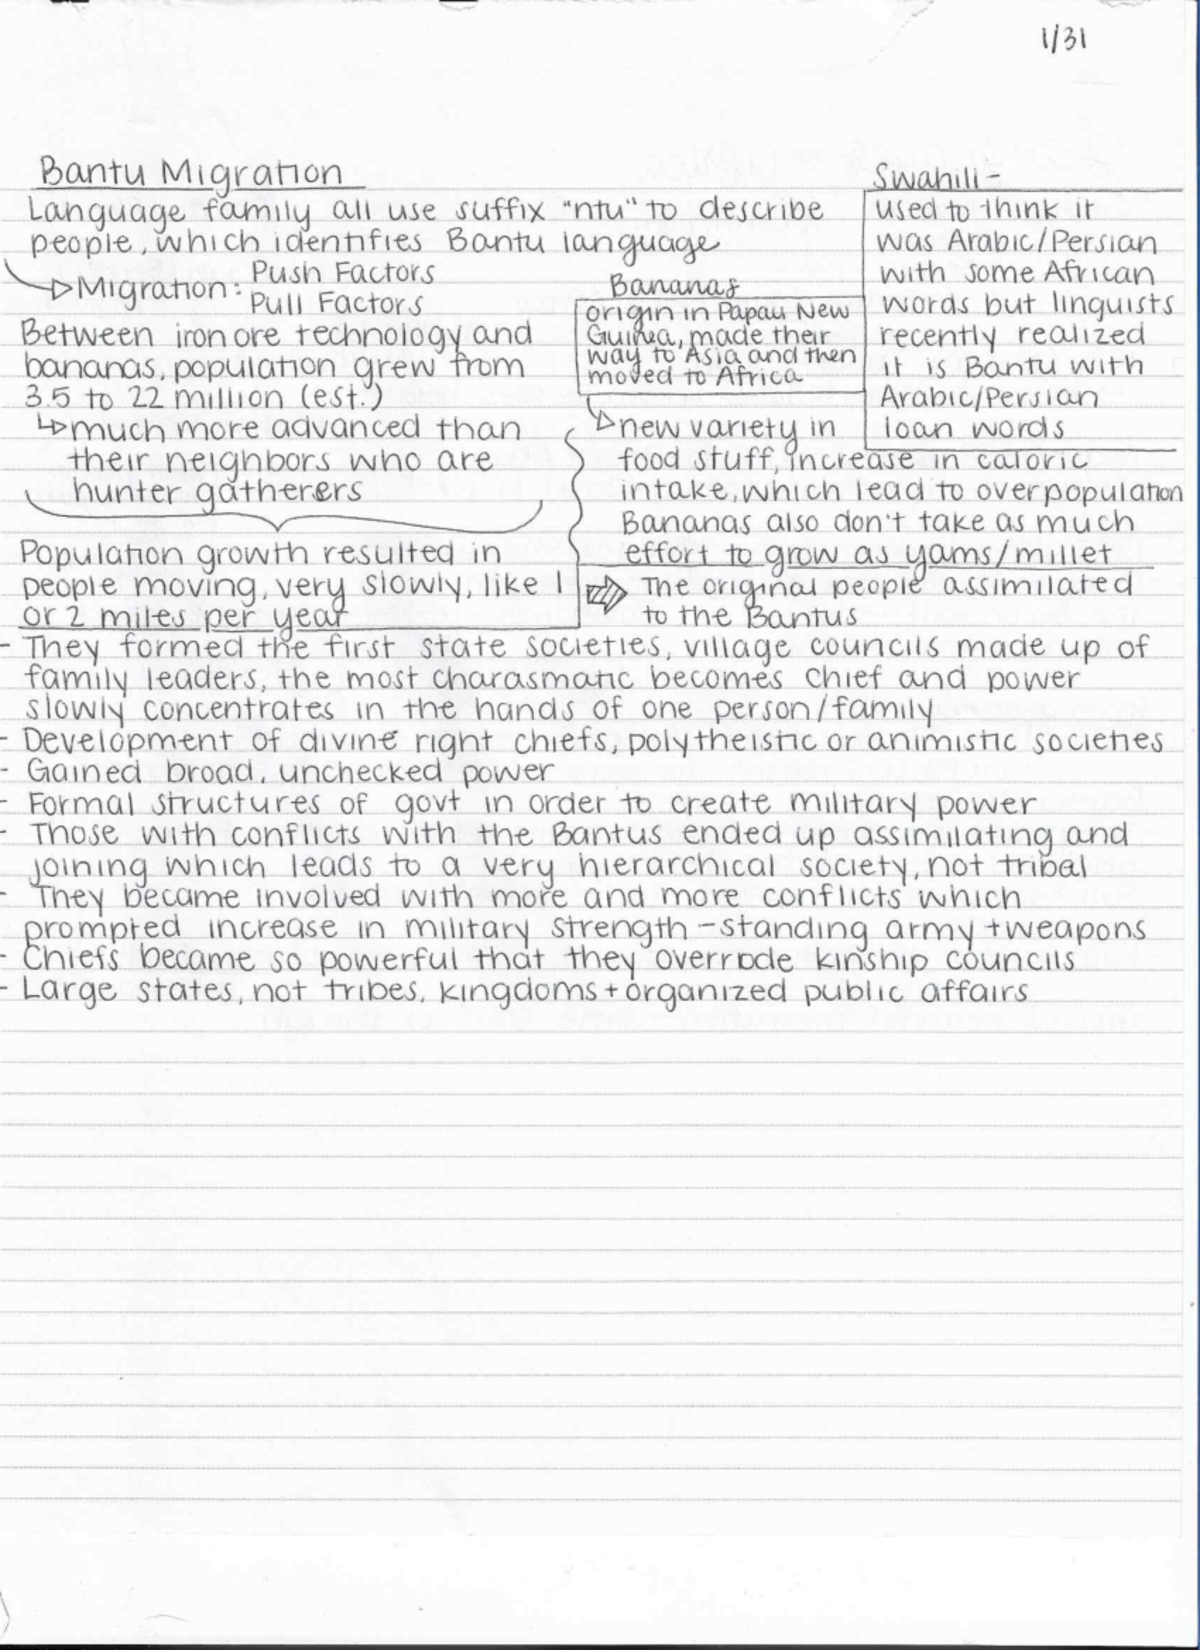 1/31
Bantu Migration
Language family all use suffix "ntu" to describe
people, which identifies Bantu language
Migration: Push Factors
Pull Factors
Between iron ore technology and
bananas, population grew from
3.5 to 22 million (est.)
much more advanced than
their neighbors who are
hunter gatherers
Population growth resulted in
people moving, very slowly, like 1
or 2 miles per year
Bananas
origin in Papau New
Guinea, made their
way to Asia and then
moved to Africa
new variety in
food stuff, increase in caloric
intake, which lead to overpopulation
Bananas also don't take as much
effort to grow as yams/millet
The original people assimilated
to the Bantus
Swahili-
used to think it
was Arabic/Persian
with some African
words but linguists
recently realized
it is Bantu with
Arabic/Persian
loan words
- They formed the first state societies, village councils made up of
family leaders, the most charasmatic becomes chief and power
slowly concentrates in the hands of one person/family
- Development of divine right chiefs, polytheistic or animistic societies
- Gained broad, unchecked power
- Formal structures of govt in order to create military power
- Those with conflicts with the Bantus ended up assimilating and
joining which leads to a very hierarchical society, not tribal
- They became involved with more and more conflicts which
prompted increase in military strength - standing army + weapons
- Chiefs became so powerful that they overrode kinship councils
- Large states, not tribes, kingdoms + organized public affairs